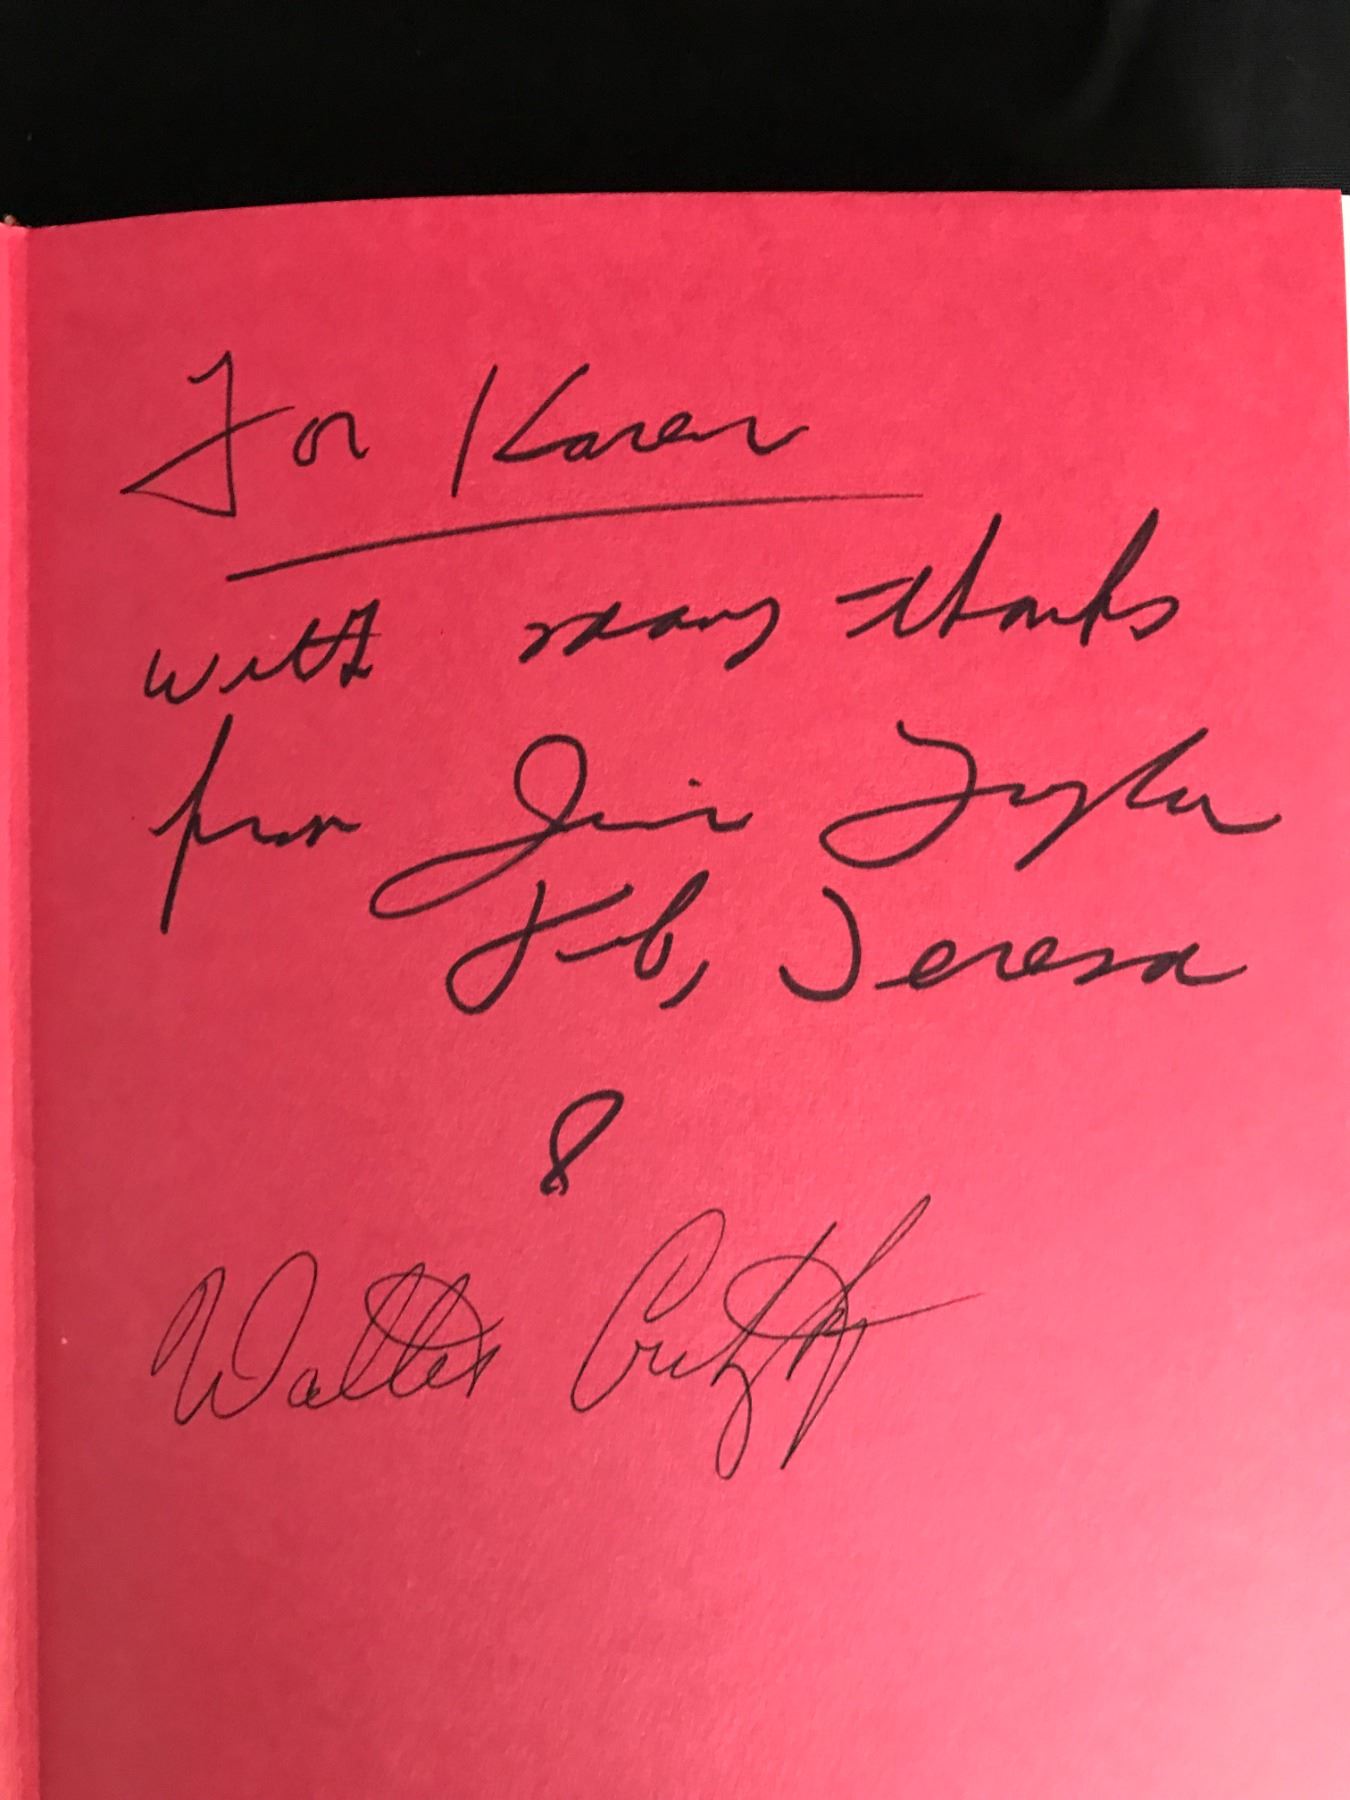 For Karen
with many thanks
from Jim Taylor
Feb, Teresa
&
Walter